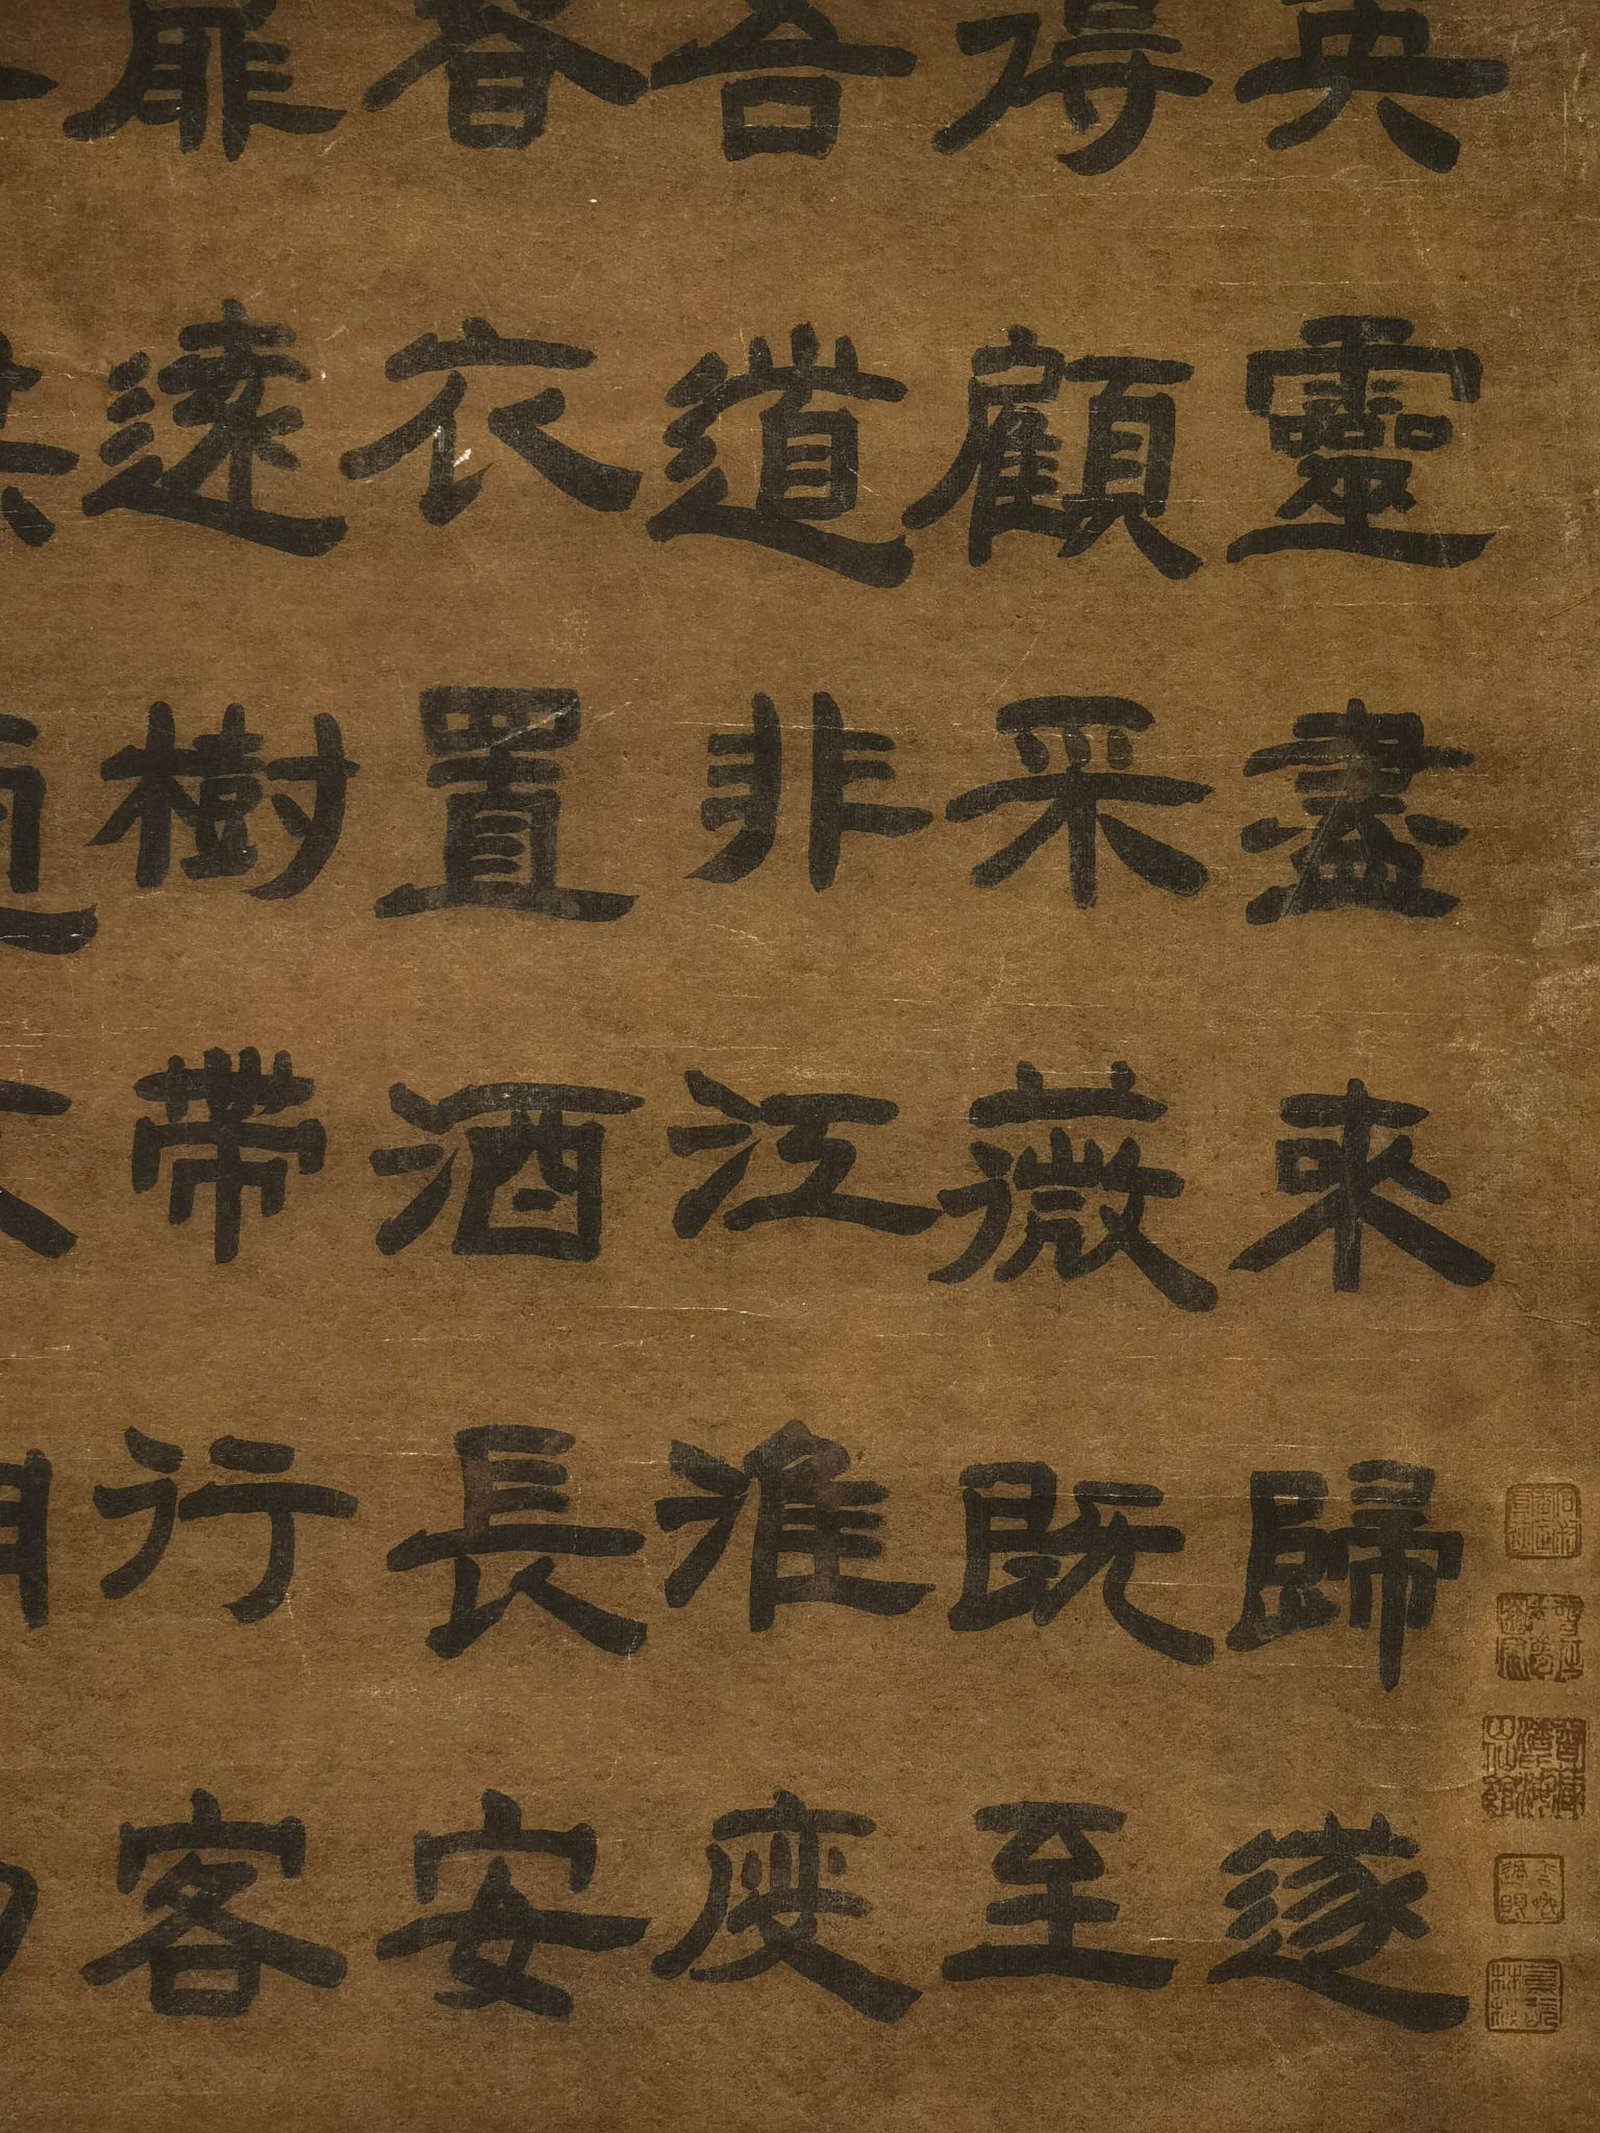 英靈盡來歸遂
得顧采薇既至
吾道非江淮度
春衣置酒長安
扉遠樹帶行客